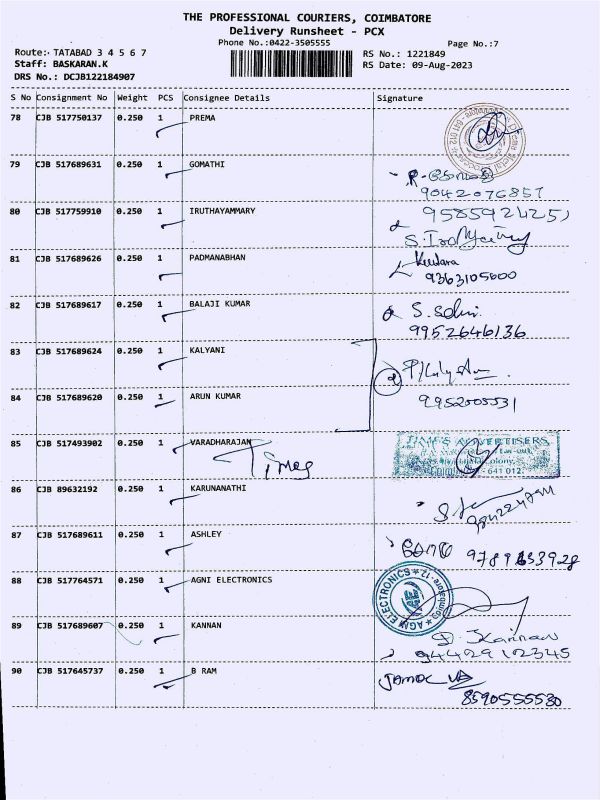 THE PROFESSIONAL COURIERS, COIMBATORE
Delivery Runsheet - PCX
Phone No.:0422-3505555
Page No.:7
Route:- TATABAD 3 4 5 6 7
RS No.: 1221849
Staff: BASKARAN.K
RS Date: 09-Aug-2023
DRS No.: DCJB122184907
S No Consignment No Weight PCS Consignee Details Signature
78 CJB 517750137 0.250 1 PREMA
79 CJB 517689631 0.250 1 GOMATHI
9042076857
80 CJB 517759910 0.250 1 IRUTHAYAMMARY
81 CJB 517689626 0.250 1 PADMANABHAN
9363105600
82 CJB 517689617 0.250 1 BALAJI KUMAR
9952646136
83 CJB 517689624 0.250 1 KALYANI
84 CJB 517689620 0.250 1 ARUN KUMAR
85 CJB 517493902 0.250 1 VARADHARAJAN Times
TIMES ADVERTISERS
641 012.
86 CJB 89632192 0.250 1 KARUNANATHI
87 CJB 517689611 0.250 1 ASHLEY
88 CJB 517764571 0.250 1 AGNI ELECTRONICS
AGNI ELECTRONICS
89 CJB 517689607 0.250 1 KANNAN
D. Kannan
9442912345
90 CJB 517645737 0.250 1 B RAM
8590555530